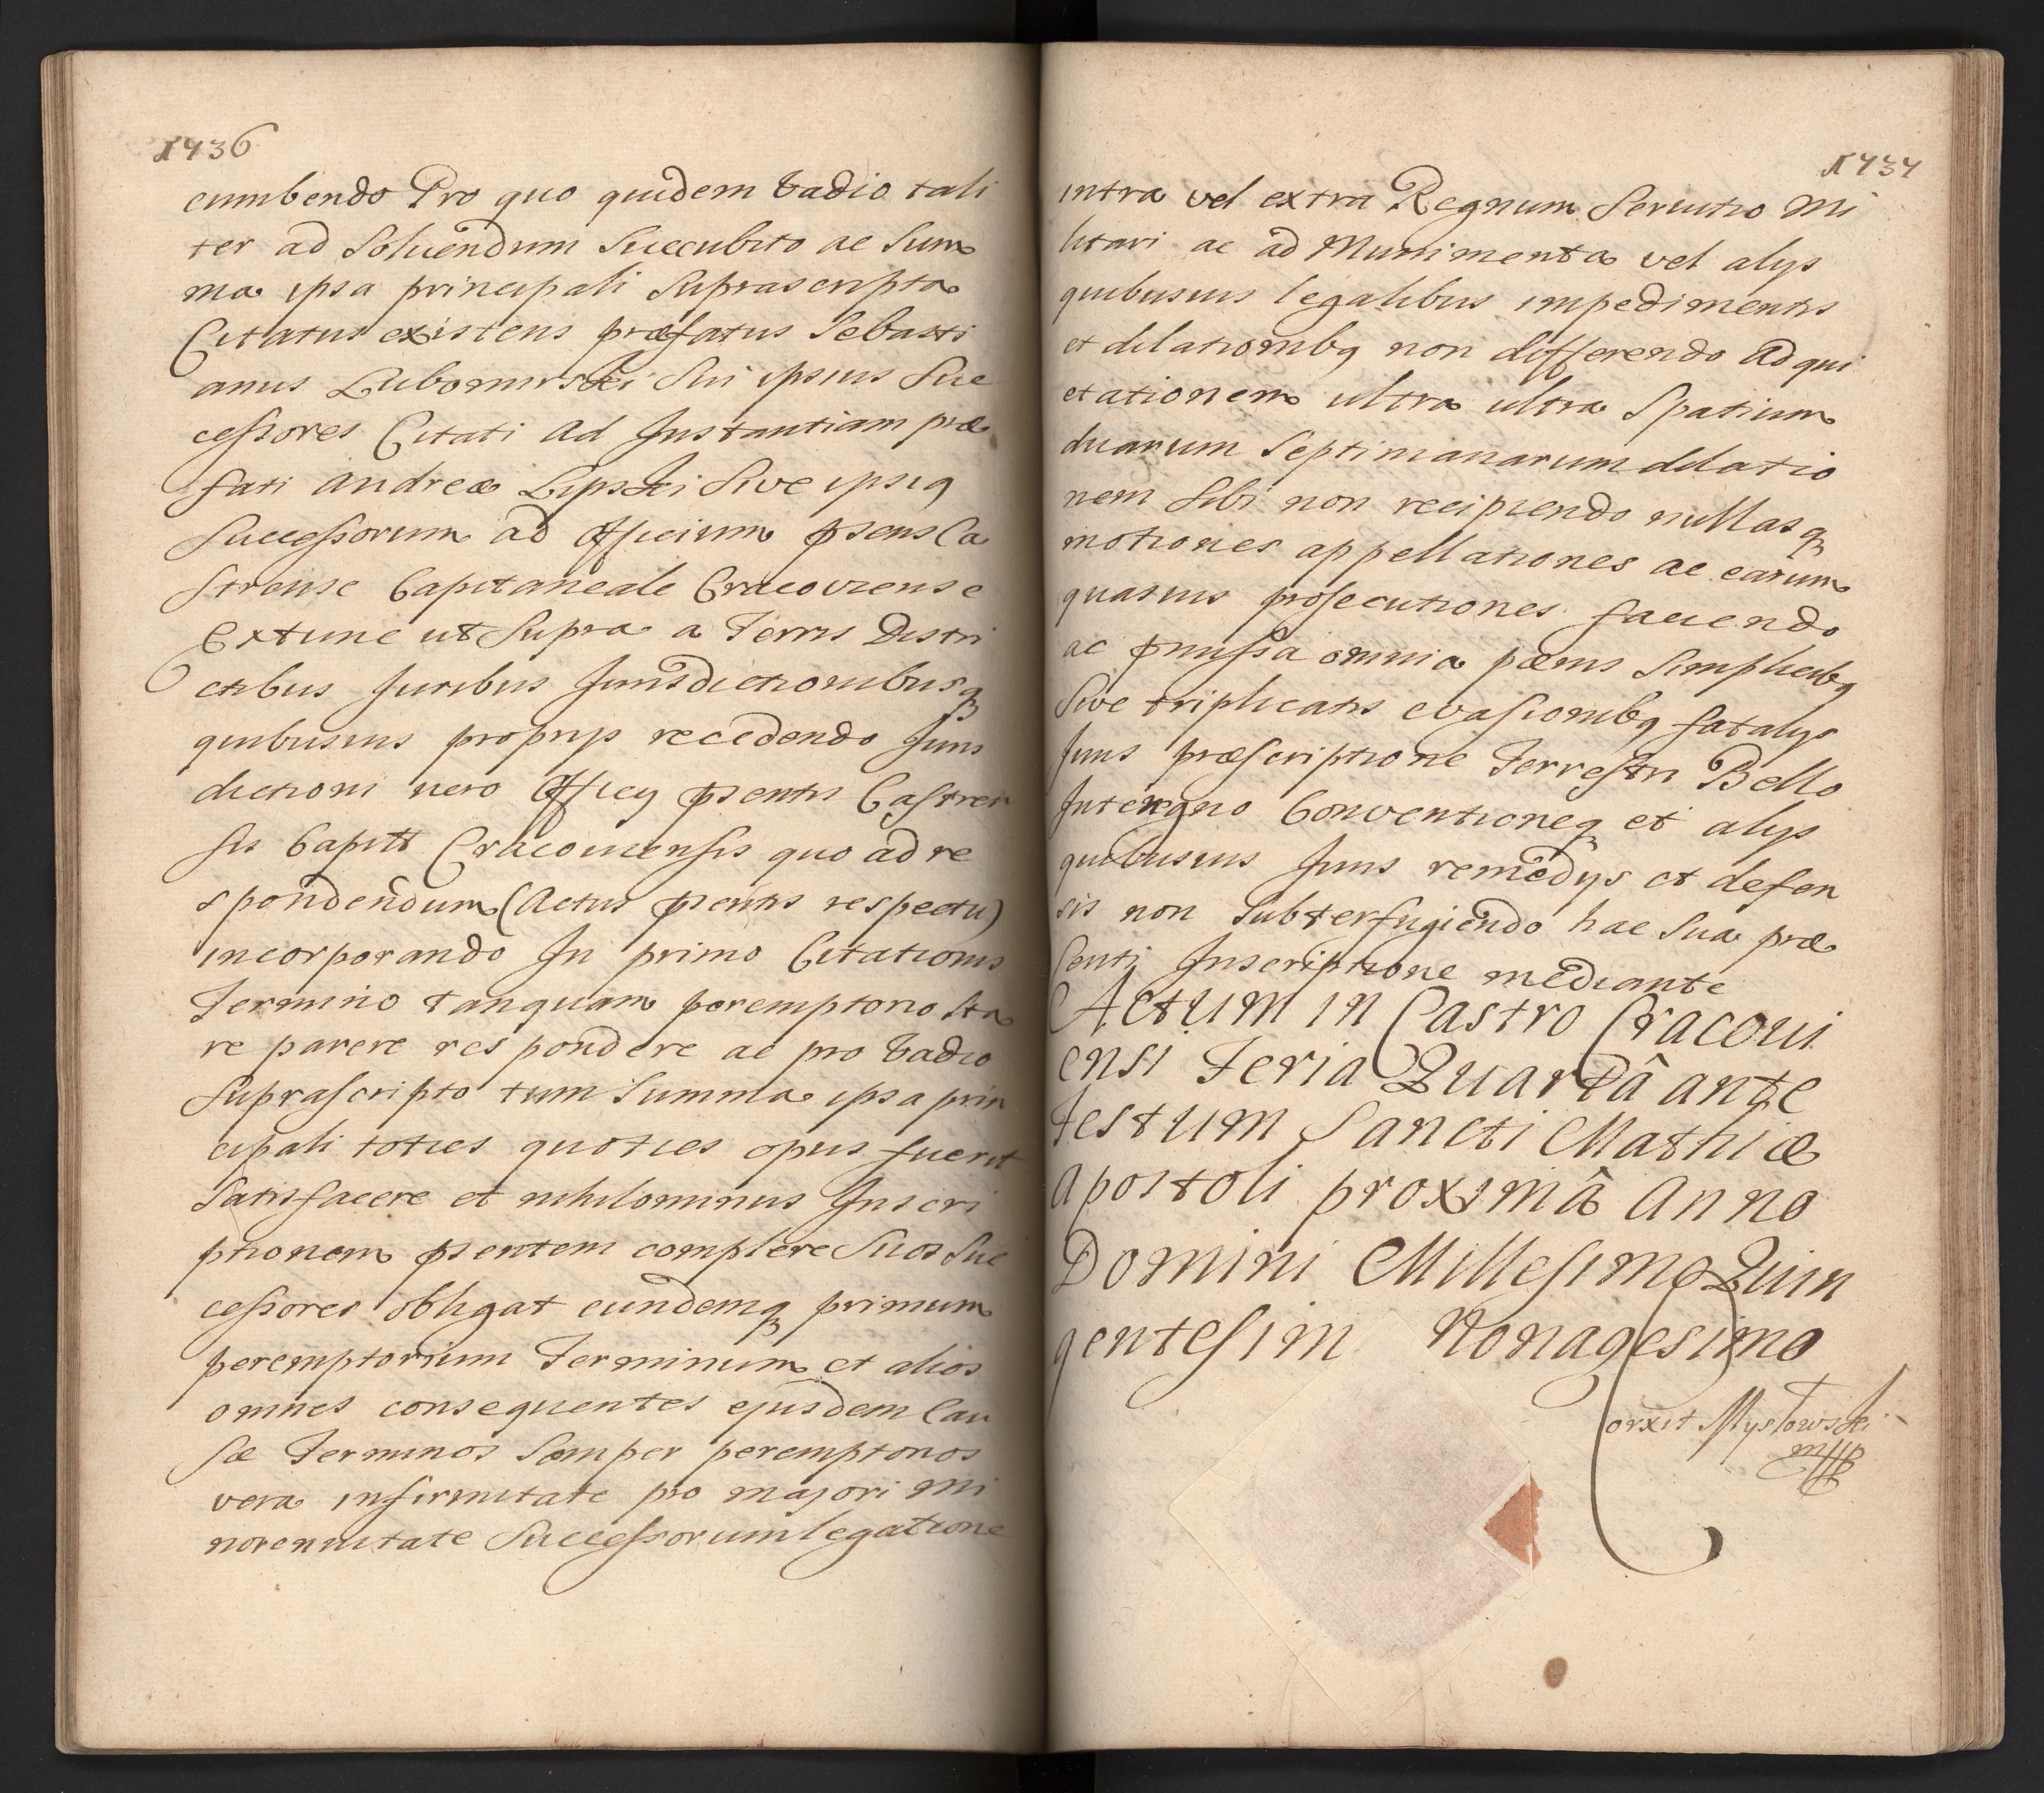 1436
cumbendo Pro quo quidem Vadio tali
ter ad Solvendum Succubito ac Sum
ma ipsa principali Suprascripta
Citatus existens præfatus Sebasti
anus Lubomirski Sui ipsius Suc
cessores Citati Ad Instantiam præ
fati Andreæ Lipski Sive ipsiq
Successorum ad Officium psens Ca
strense Capitaneale Cracoviense
Extunc ut Supra a Terris Distri
ctibus Juribus Jurisdictionibusq
quibusvis proprijs recedendo Juris
dictioni vero Officij psentis Castren
sis Capitt Cracoviensis quo ad re
spondendum (Actus psentis respectu)
incorporando In primo Citationis
Termino tanquam peremptorio Sta
re parere respondere ac pro Vadio
Suprascripto tum Summa ipsa prin
cipali toties quoties opus fuerit
Satisfacere et nihilominus Inscri
ptionem psentem complere Suos Suc
cessores obligat eundemq primum
peremptorium Terminum et alios
omnes consequentes ejusdem Cau
sæ Terminos Semper peremptorios
vera infirmitate pro majori Mi
norennitate Successorum legatione
1437
intra vel extra Regnum Servitio Mi
litari ac ad Munimenta vel alijs
quibusvis legalibus impedimentis
et dilationibq non differendo Ad qui
etationem ultra ultra Spatium
duarum Septimanarum dilatio
nem Sibi non recipiendo nullasq
motiones appellationes ac earum
quasvis prosecutiones faciendo
ac pmissa omnia pœnis Simplicibq
Sive triplicatis evasionibq fatalijs
Juris præscriptione Terrestri Bello
Interregno Conventioneq et alijs
quibusvis Juris remedijs et defen
sis non Subterfugiendo hac Sua præ
senti Inscriptione mediante
Actum in Castro Cracovi
ensi Feria Quartâ ante
Festum Sancti Mathiæ
Apostoli proximâ Anno
Domini Millesimo Quin
gentesim Nonagesimo
Corxit Mysłowski